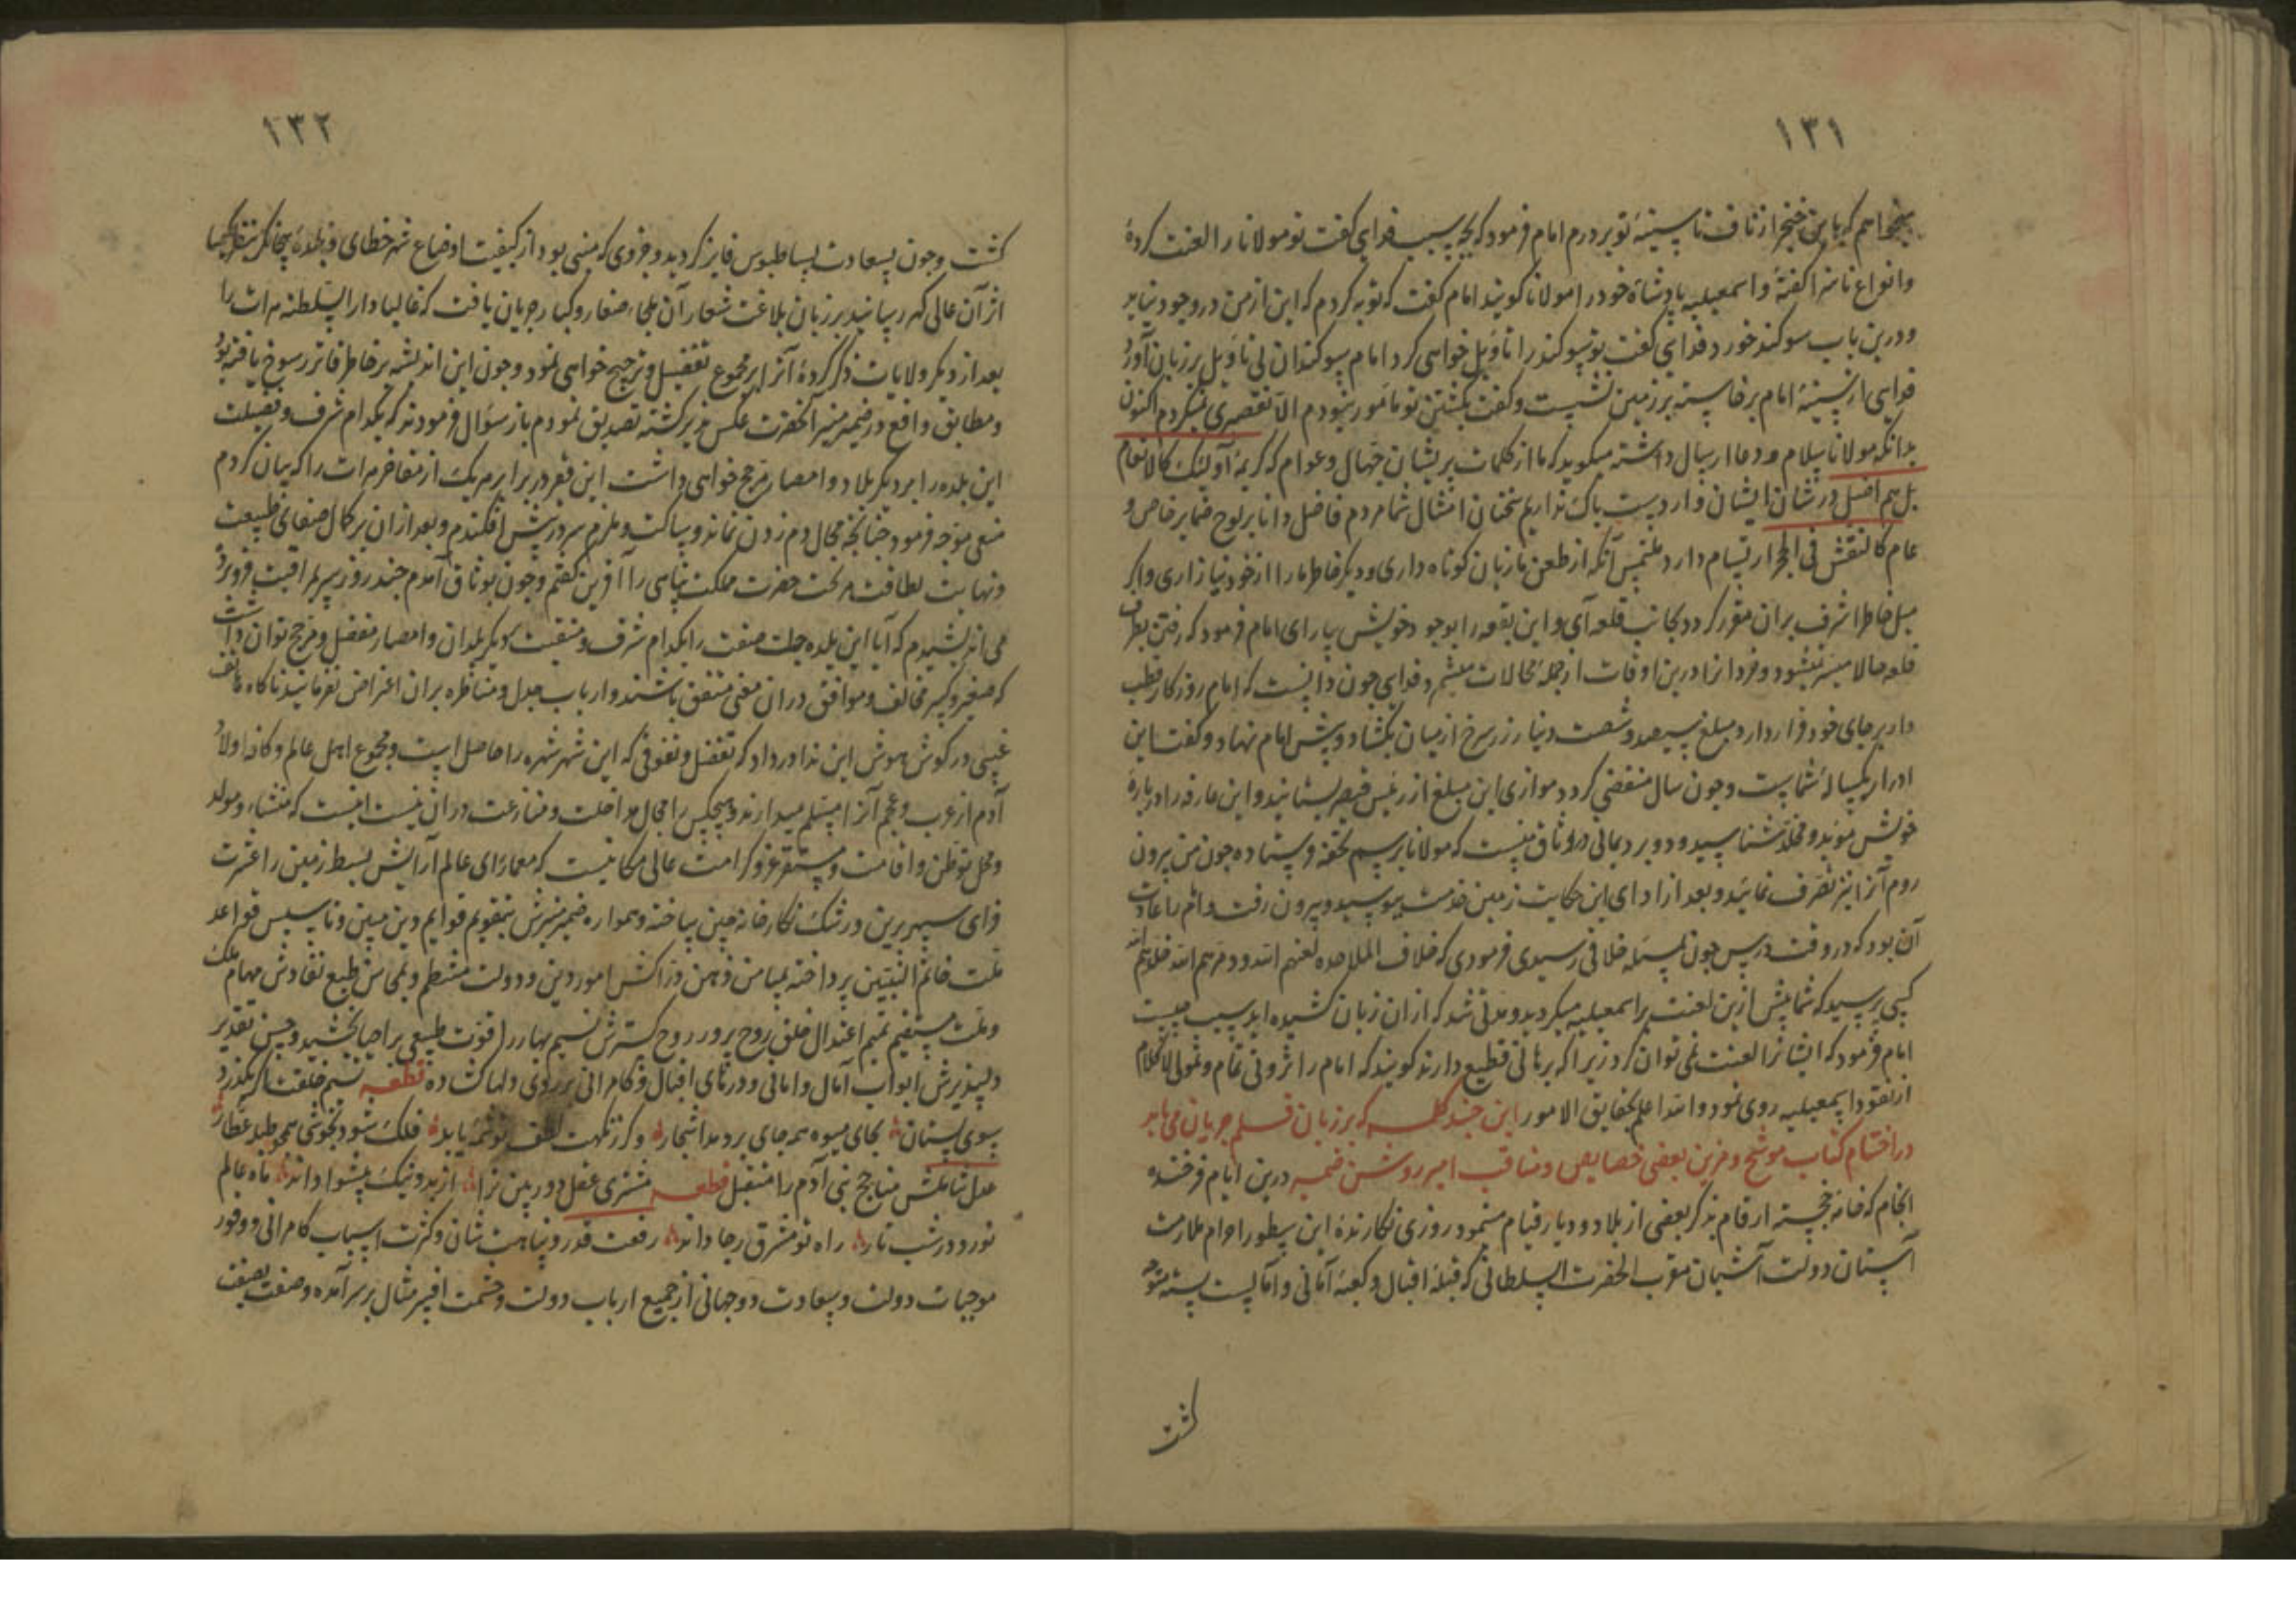 ۱۳۱
میخواهم که باین خنجر از ناف تا سینهٔ تو بردرم امام فرمود که بچه سبب فدایی گفت تو مولانا را لعنت کردهٔ
وانواع ناسزا گفتهٔ واسمعیلیه پادشاه خود را مولانا گویند امام گفت که توبه کردم که این از من در وجود نیاید
ودرین باب سوکند خورد فدایی گفت تو سوکند را تاویل خواهی کرد امام سوکندان بی تاویل بر زبان آورد
فدایی از سینهٔ امام برخاسته بر زمین نشست وگفت بکشتن تو مامور نبودم الا تقصیری نمیکردم اکنون
بدانکه مولانا سلام ودعا ارسال داشته میگوید که ما از کلمات پریشان جهال وعوام که کریمهٔ اولئک کالانعام
بل هم اضل در شان ایشان واردست باک نداریم سخنان امثال شما مردم فاضل ودانا بر لوح ضمایر خاص و
عام کالنقش فی الحجر ارتسام دارد ملتمس آنکه از طعن ما زبان کوتاه داری ودیگر خاطر ما را از خود نیازاری واگر
میل خاطر اشرف بران مقرر گردد بجانب قلعه آی واین بقعه را بوجود خویش بیارای امام فرمود که رفتن بطرف
قلعه حالا میسر نمیشود وفردا نیز درین اوقات از جمله محالات میشمرد فدایی چون دانست که امام روزگار قطب
وار بر جای خود قرار دارد مبلغ سیصد وشصت دینار زر سرخ از میان بگشاد وپیش امام نهاد وگفت این
ادرار یکسالهٔ شماست وچون سال منقضی گردد موازی این مبلغ از رئیس قیصر بستانید واین عارفه را دربارهٔ
خویش موبد ومخلد شناسید ودو برد یمانی در وثاق منست که مولانا برسم تحفه فرستاده چون من بیرون
روم آنرا نیز تصرف نمایید وبعد از ادای این حکایت زمین خدمت ببوسید وبیرون رفت وامام را عادت
آن بود که در وقت درس چون بمسئله خلافی رسیدی فرمودی که خلاف الملاحده لعنهم الله ودمرهم الله خذلهم الله
کسی پرسید که شما پیش ازین لعنت بر اسمعیلیه میکردید ومدتی شد که از ان زبان کشیده اید سبب چیست
امام فرمود که ایشانرا لعنت نمی توان کرد زیرا که برهانی قطیع دارند گویند که امام را ثروتی تمام وتمولی لا کلام
از نقود اسمعیلیه روی نمود والله اعلم بحقایق الامور این چند کلمه که بر زبان قلم جریان می یابد
در اختتام کتاب موشح ومزین ببعضی خصایص ومناقب امیر روشن ضمیر درین ایام فرخنده
انجام که خامه خجسته ارقام بذکر بعضی از بلاد ودیار قیام مینمود روزی نگارندهٔ این سطور احرام ملازمت
آستان دولت آشیان مقرب الحضرت السلطانی که قبلهٔ اقبال وکعبهٔ آمانی وآمالست بسته متوجه
گشت
۱۳۲
گشت وچون بسعادت بساط بوس فایز گردید وجزوی که منبی بود از کیفیت اوضاع شهر خطای وبلدهٔ
از آن عالی گهر رسانید بر زبان بلاغت شعار آن ملجاء صغار وکبار جریان یافت که غالبا دار السلطنه هرات را
بعد از دیگر ولایات ذکر کردهٔ آنرا بر مجموع تفضیل وترجیح خواهی نمود وچون این اندیشه بر خاطر فاتر رسوخ یافته بود
ومطابق واقع در ضمیر منیر آنحضرت عکس پذیر گشته تصدیق نمودم باز سؤال فرمودند که بکدام شرف وفضیلت
این بلده را بر دیگر بلاد وامصار مرجح خواهی داشت این فقیر در برابر هر یک از مفاخر هرات را که بیان کردم
منعی موجه فرمود چنانچه مجال دم زدن نماند وساکت وملزم سر در پیش افکندم وبعد از ان بر کمال صفای طبیعت
ونهایت لطافت حضرت مملکت پناهی را آفرین گفتم وچون بوثاق آمدم چند روز سر بمراقبت فرو برده
می اندیشیدم که آیا این بلده جنت صفت را بکدام شرف ومنقبت بر دیگر بلدان وامصار مفضل ومرجح توان داشت
که صغیر وکبیر مخالف وموافق در ان معنی متفق باشند وارباب جدل ومناظره بران اعتراض نفرمایند ناگاه هاتف
غیبی در گوش هوش این ندا در داد که تفضل وتفوقی که این شهر شهره را حاصل است ومجموع اهل عالم وکافه اولاد
آدم از عرب وعجم آنرا مسلم میدارند وهیچکس را مجال مداخلت ومنازعت در ان نیست اینست که منشاء ومولد
ومحل توطن واقامت ومستقر عز وکرامت عالی مکانیست که معمار رای عالم آرایش بسیط زمین را غیرت
فزای سپهر برین ورشک نگارخانه چین ساخته وهمواره ضمیر منیرش بتقویم قوایم دین مبین وتاسیس قواعد
ملت خاتم النبیین پرداخته بمیامن ذهن دراکش امور دین ودولت منتظم وبمحاسن طبع نقادش مهام ملک
وملت مستقیم نسیم اعتدال خلق روح پرور روح گسترش نسیم بهار را قوت طبیعی بر احیا بخشید وحسن تقدیر
دلپذیرش ابواب آمال وامانی ودرهای اقبال وکامرانی بر روی دلها گشاده قطعه نسیم خلقت اگر بگذرد
بسوی بستان بجای میوه همه جای بر دمد اشجار وگر ز نکهت لطف تو شمهٔ یابد فلک شود بخوشی همچو طبلهٔ عطار
عدل شاملش مناجح بنی آدم را متقبل قطعه مشتری عقل دوربین ترا از بد ونیک پیشوا داند ماه عالم
نورد در شب تار راه تو مشرق رجا داند رفعت قدر ونباهت شان وکثرت اسباب کامرانی ووفور
موجبات دولت وسعادت دوجهانی از جمیع ارباب دولت وحشمت بر سر آمده وصفت نصفت